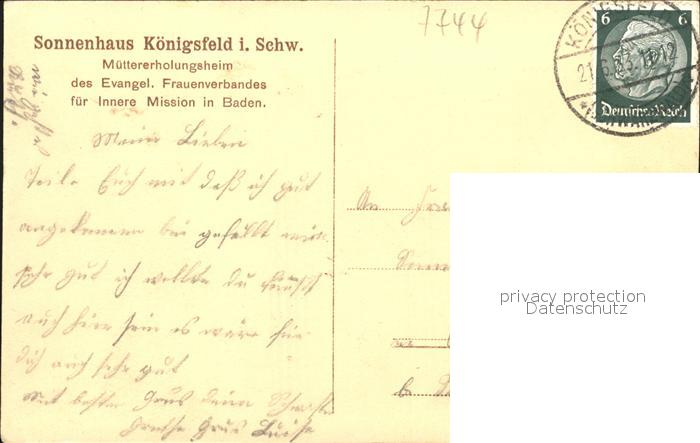 7744
Sonnenhaus Königsfeld i. Schw.
Müttererholungsheim
des Evangel. Frauenverbandes
für Innere Mission in Baden.
KÖNIGSFELD
6 6
Deutsches Reich
Meine Lieben
Teile Euch mit daß ich gut
angekommen bin gefällt mir
sehr gut ich wollte du könnst
auch hier sein es wäre für
dich auch sehr gut
mit besten Grus deine Schwester
Grus Luise
An
privacy protection
Datenschutz